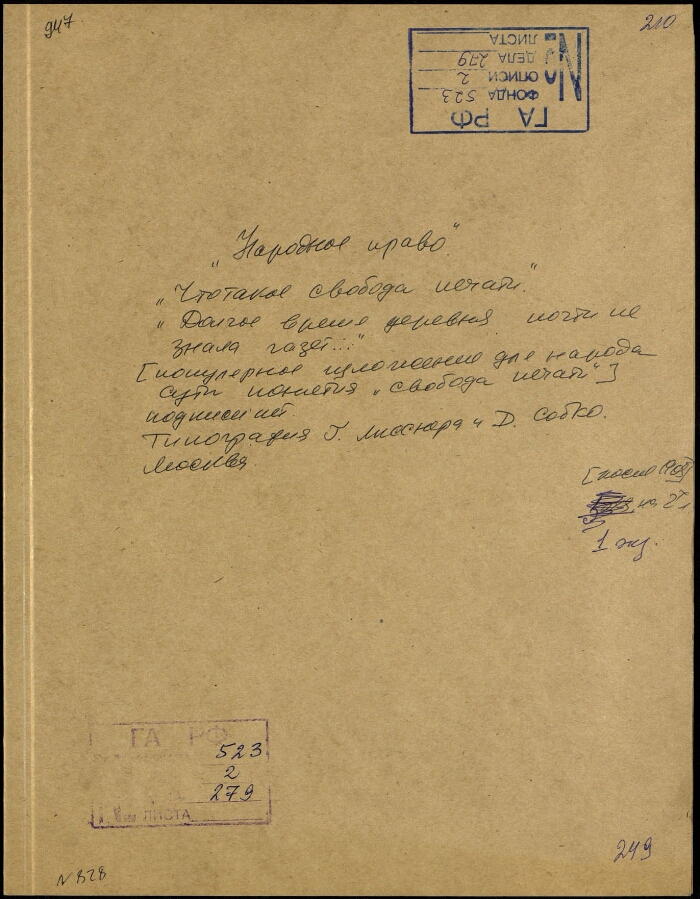 947
210
ГА РФ
ФОНДА 523
№ ОПИСИ 2
ДЕЛА 279
ЛИСТА
"Народное право"
"Что такое свобода печати."
"Долгое время деревня почти не
знала газет..."
[популярное изложение для народа
сути понятия "свобода печати"]
подписи нет.
Типография Г. Лисснера и Д. Собко.
Москва.
[после 1905]
на 2 л
1 экз.
ГА РФ
523
2
279
ЛИСТА
249
N 828